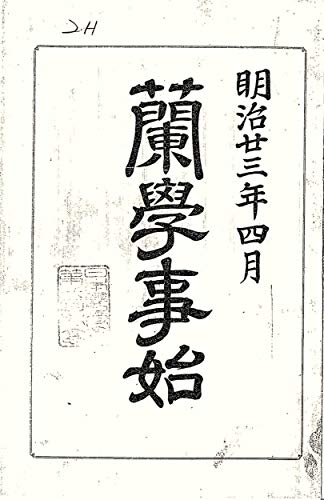 明治廿三年四月
蘭學事始